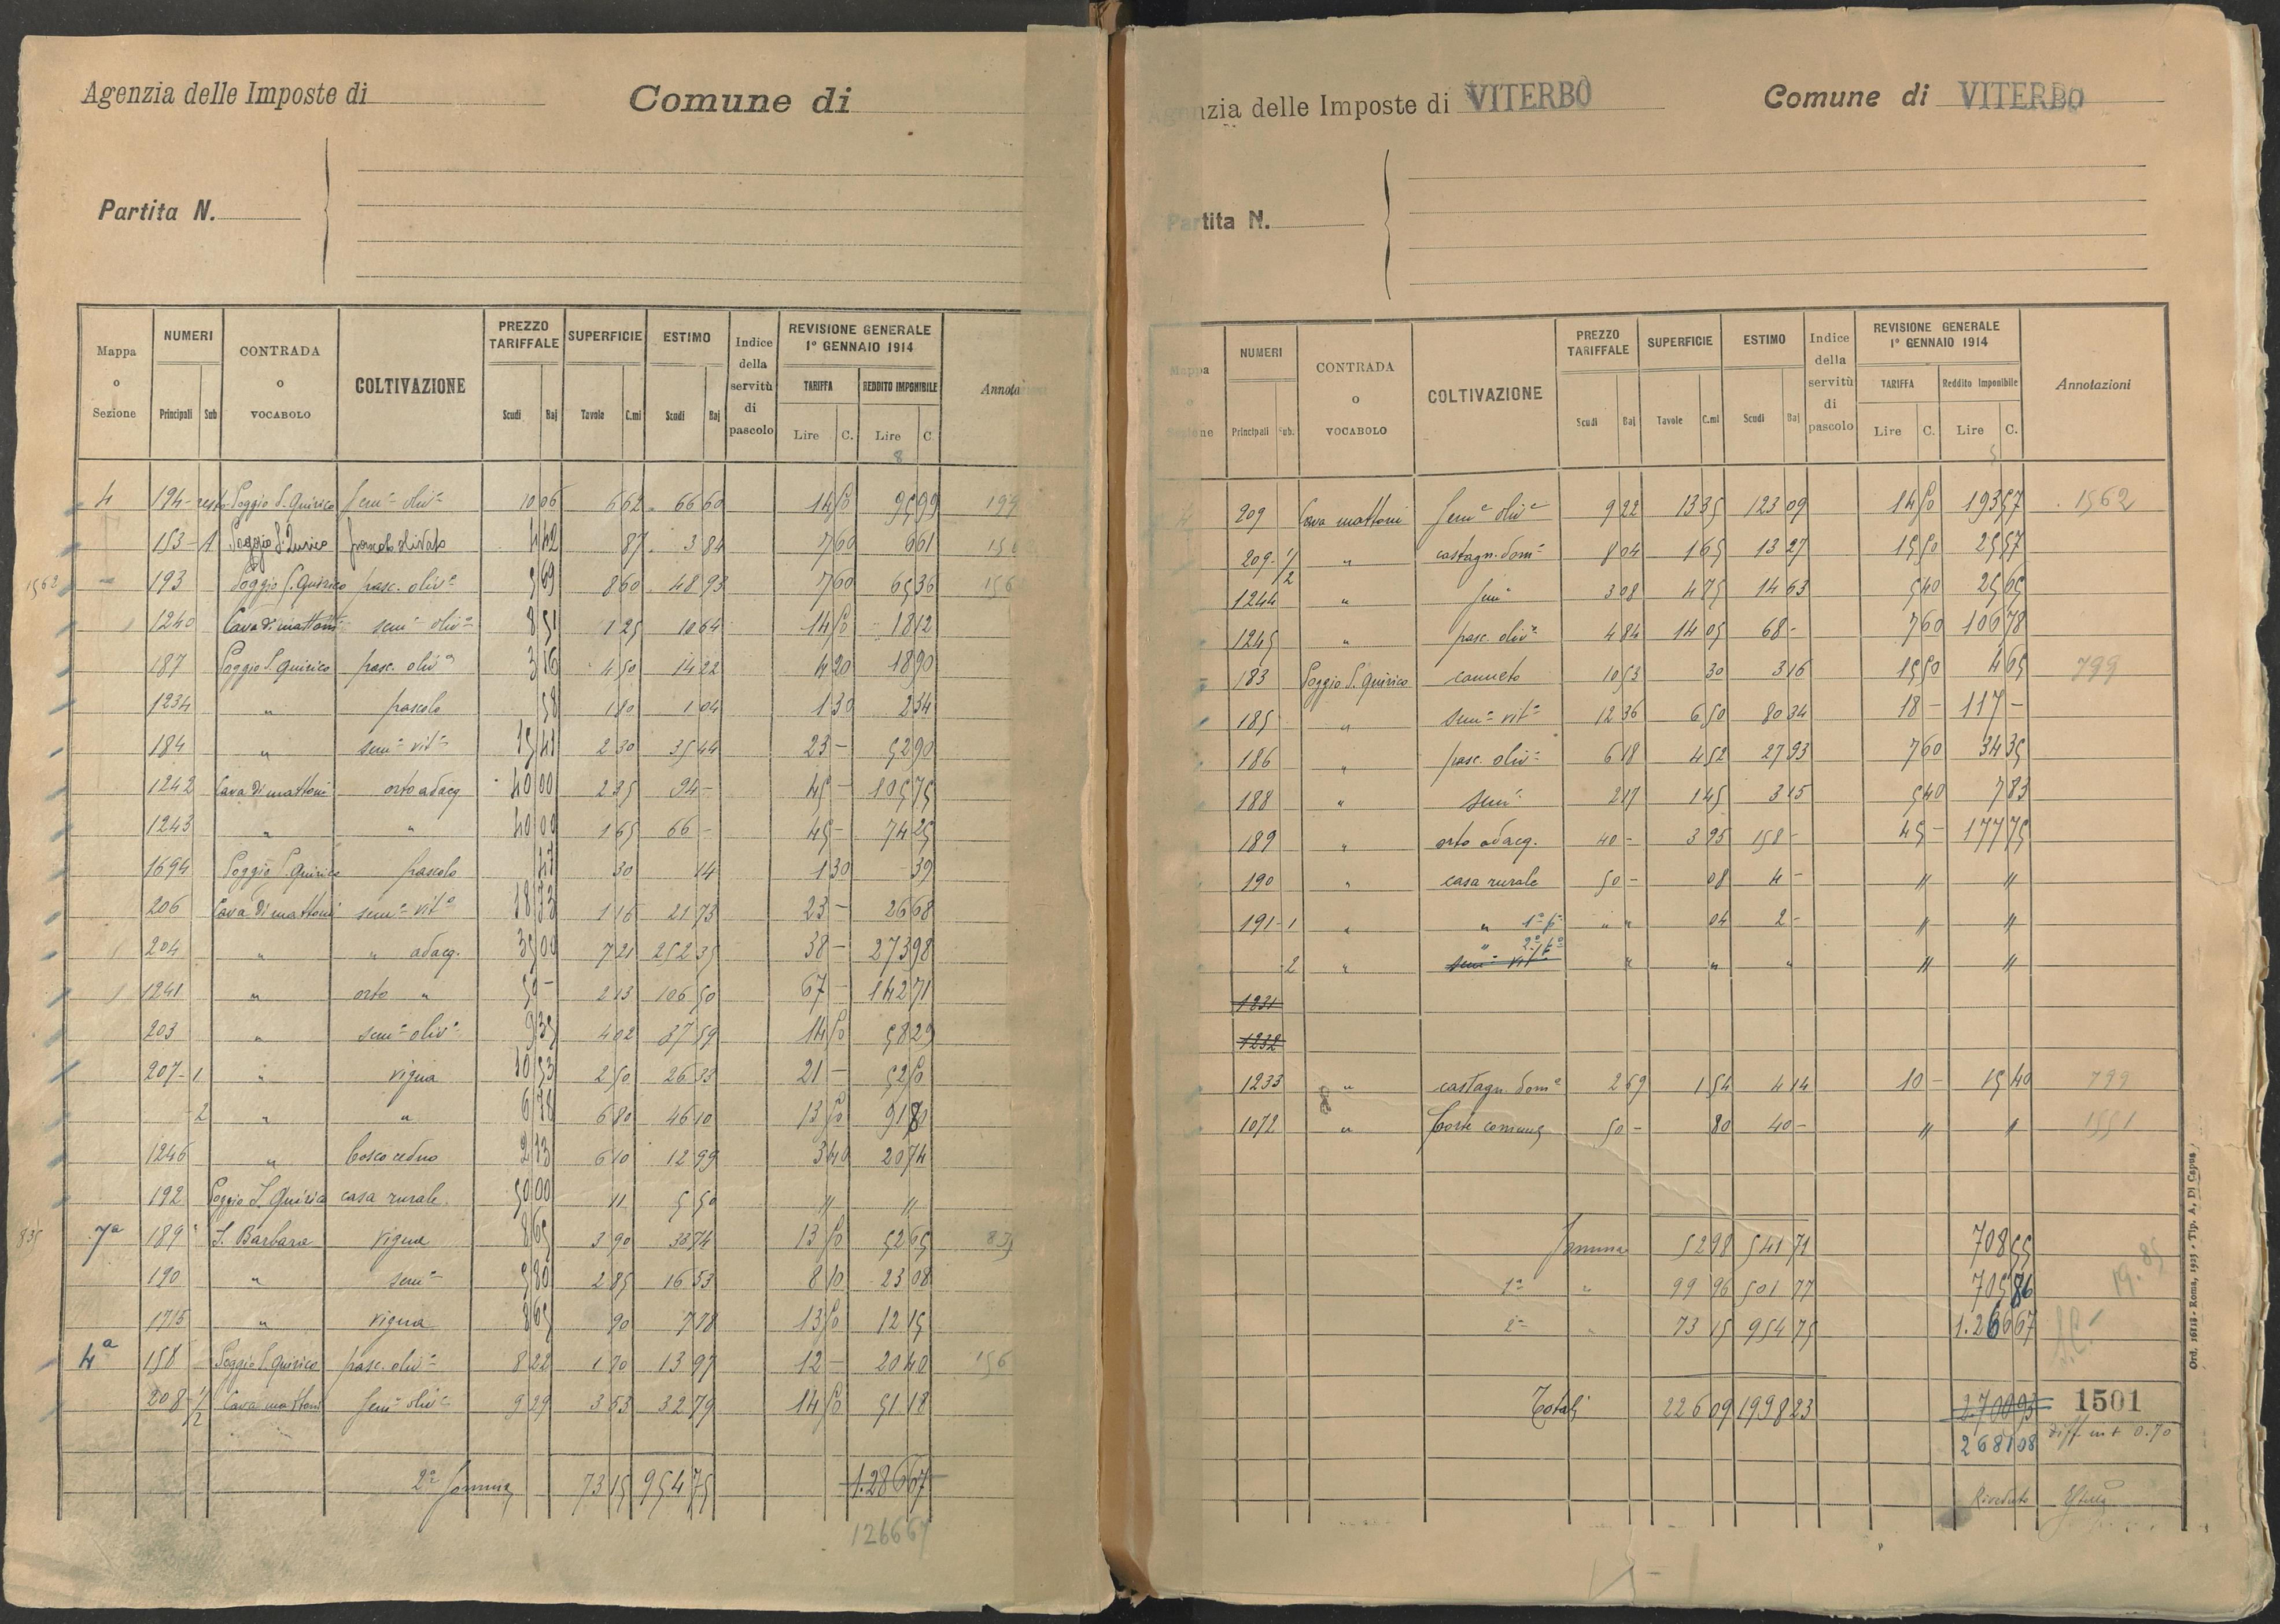 Agenzia delle Imposte di Comune di
Partita N.
Mappa o Sezione NUMERI Principali Sub CONTRADA o VOCABOLO COLTIVAZIONE PREZZO TARIFFALE Scudi Baj SUPERFICIE Tavole C.mi ESTIMO Scudi Baj Indice della servitù di pascolo REVISIONE GENERALE 1° GENNAIO 1914 TARIFFA Lire C. REDDITO IMPONIBILE Lire C.
4 194 resto Poggio S. Quirico Sem° oliv° 10 06 6 62 66 60 14 50 95 99 199
153-1 Poggio S. Quirico pascolo olivato 4 42 87 3 84 7 60 6 61
1562 193 Poggio S. Quirico pasc. oliv° 5 69 8 60 48 93 7 60 65 36 156
1240 Cava di mattoni sem° oliv° 8 51 1 25 10 64 14 50 18 12
187 Poggio S. Quirico pasc. oliv° 3 16 4 50 14 22 4 20 18 90
1234 " pascolo 58 1 80 1 04 1 30 2 34
184 " sem° vit° 15 41 2 30 35 44 23 - 52 90
1242 Cava di mattoni orto adacq 40 00 2 35 94 - 45 - 105 75
1243 " " 40 00 1 65 66 - 45 - 74 25
1694 Poggio S. Quirico pascolo 47 30 14 1 30 - 39
206 Cava di mattoni sem° vit° 18 73 1 16 21 73 23 - 26 68
204 " " adacq. 35 00 7 21 252 35 38 - 273 98
1241 " orto " 50 - 2 13 106 50 67 - 142 71
203 " sem° oliv° 9 35 4 02 37 59 14 50 58 29
207-1 " vigna 10 53 2 50 26 33 21 - 52 50
2 " " 6 78 6 80 46 10 13 50 91 80
1246 " bosco ceduo 2 13 6 10 12 99 3 40 20 74
192 Poggio S. Quirico casa rurale 50 00 11 5 50 " "
835 7ª 189 S. Barbara vigna 8 65 3 90 33 74 13 50 52 65 835
190 " sem° 5 80 2 85 16 53 8 10 23 08
1715 " vigna 8 65 90 7 78 13 50 12 15
4ª 158 Poggio S. Quirico pasc. oliv° 8 22 1 70 13 97 12 - 20 40 156
208-1/2 Cava mattoni Sem° oliv° 9 29 3 53 32 79 14 50 51 18
2ª Somma 73 15 954 75 1.286 67
1266 67
Agenzia delle Imposte di VITERBO Comune di VITERBO
Partita N.
Mappa o Sezione NUMERI Principali Sub. CONTRADA o VOCABOLO COLTIVAZIONE PREZZO TARIFFALE Scudi Baj SUPERFICIE Tavole C.mi ESTIMO Scudi Baj Indice della servitù di pascolo REVISIONE GENERALE 1° GENNAIO 1914 TARIFFA Lire C. Reddito Imponibile Lire C. Annotazioni
209 Cava mattoni Sem° oliv° 9 22 13 35 123 09 14 50 193 57 1562
209-1/2 " castagn. dom° 8 04 1 65 13 27 15 50 25 57
1244 " sem° 3 08 4 75 14 63 5 40 25 65
1245 " pasc. oliv° 4 84 14 05 68 - 7 60 106 78
183 Poggio S. Quirico canneto 10 53 30 3 16 15 50 4 65 799
185 " sem° vit° 12 36 6 50 80 34 18 - 117 -
186 " pasc. oliv° 6 18 4 52 27 93 7 60 34 35
188 " sem° 2 17 1 45 3 15 5 40 7 83
189 " orto adacq. 40 - 3 95 158 - 45 - 177 75
190 " casa rurale 50 - 08 4 - " "
191-1 " " 1° p° " " 04 2 - " "
2 " " 2° p° sem° vit° " " " " "
1231
1232
1233 " castagn. dom° 2 69 1 54 4 14 10 - 15 40 799
1072 " Corte comune 50 - 80 40 - " " 1551
Somma 52 98 541 71 708 55
1ª " 99 96 501 77 705 86
2ª " 73 15 954 75 1.266 67
Totali 226 09 1998 23 2.700 93 1501
2681 08 diff. in + 0.70
Riveduto
Ord. 16818 - Roma, 1925 - Tip. A. Di Capua